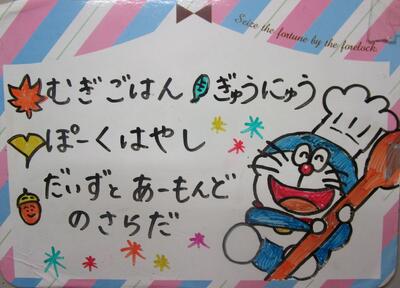 Seize the fortune by the forelock.
むぎごはん ぎゅうにゅう
ぽーくはやし
だいずと あーもんど
のさらだ